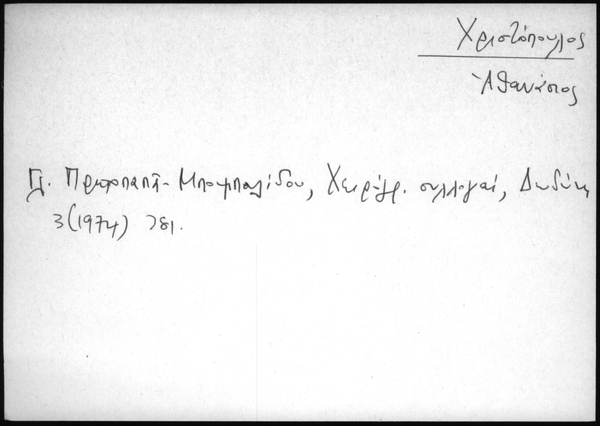 Χριστόπουλος
Ἀθανάσιος
Γλ. Πρωτοπαπᾶ-Μπουμπουλίδου, Χειρόγρ. συλλογαί, Δωδώνη
3(1974) 381.